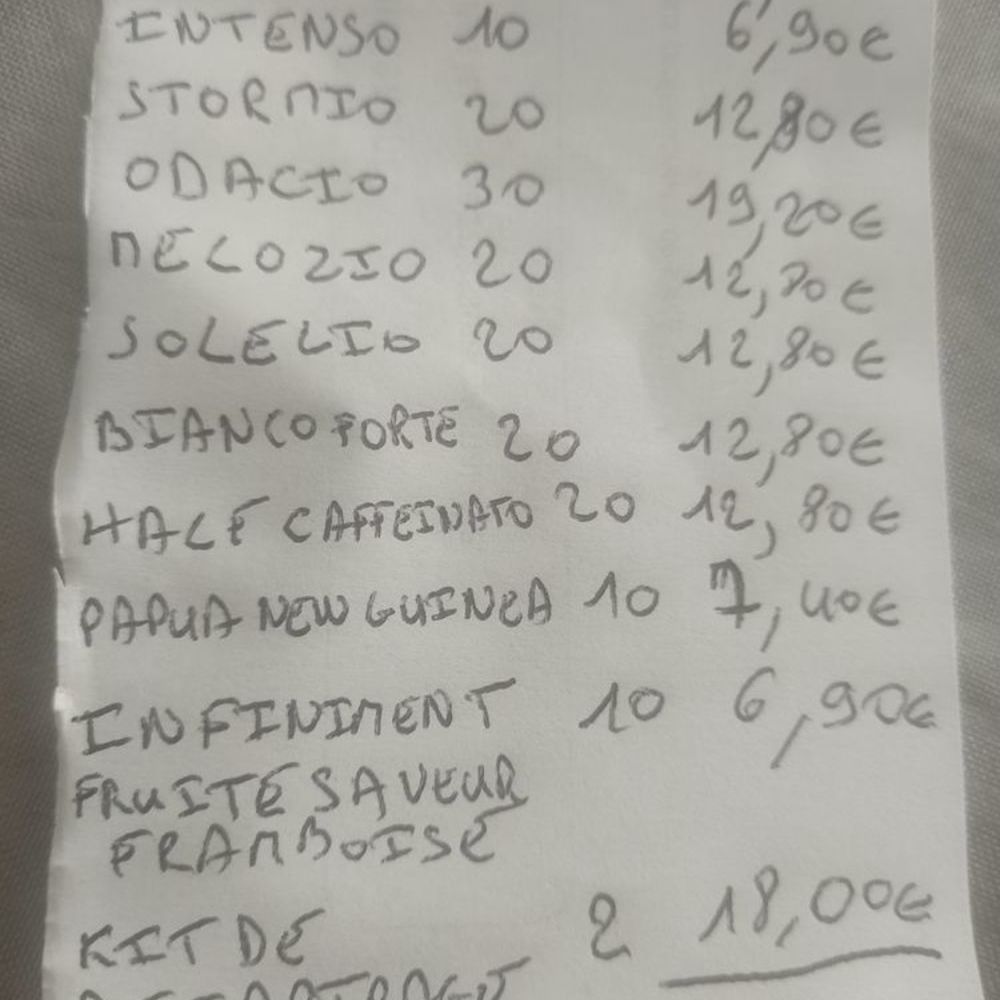 INTENSO 10 6,90€
STORMIO 20 12,80€
ODACIO 30 19,20€
MELOZIO 20 12,80€
SOLELIO 20 12,80€
BIANCO FORTE 20 12,80€
HALF CAFFEINATO 20 12,80€
PAPUA NEW GUINEA 10 7,40€
INFINIMENT 10 6,90€
FRUITÉ SAVEUR
FRAMBOISE
KIT DE 2 18,00€